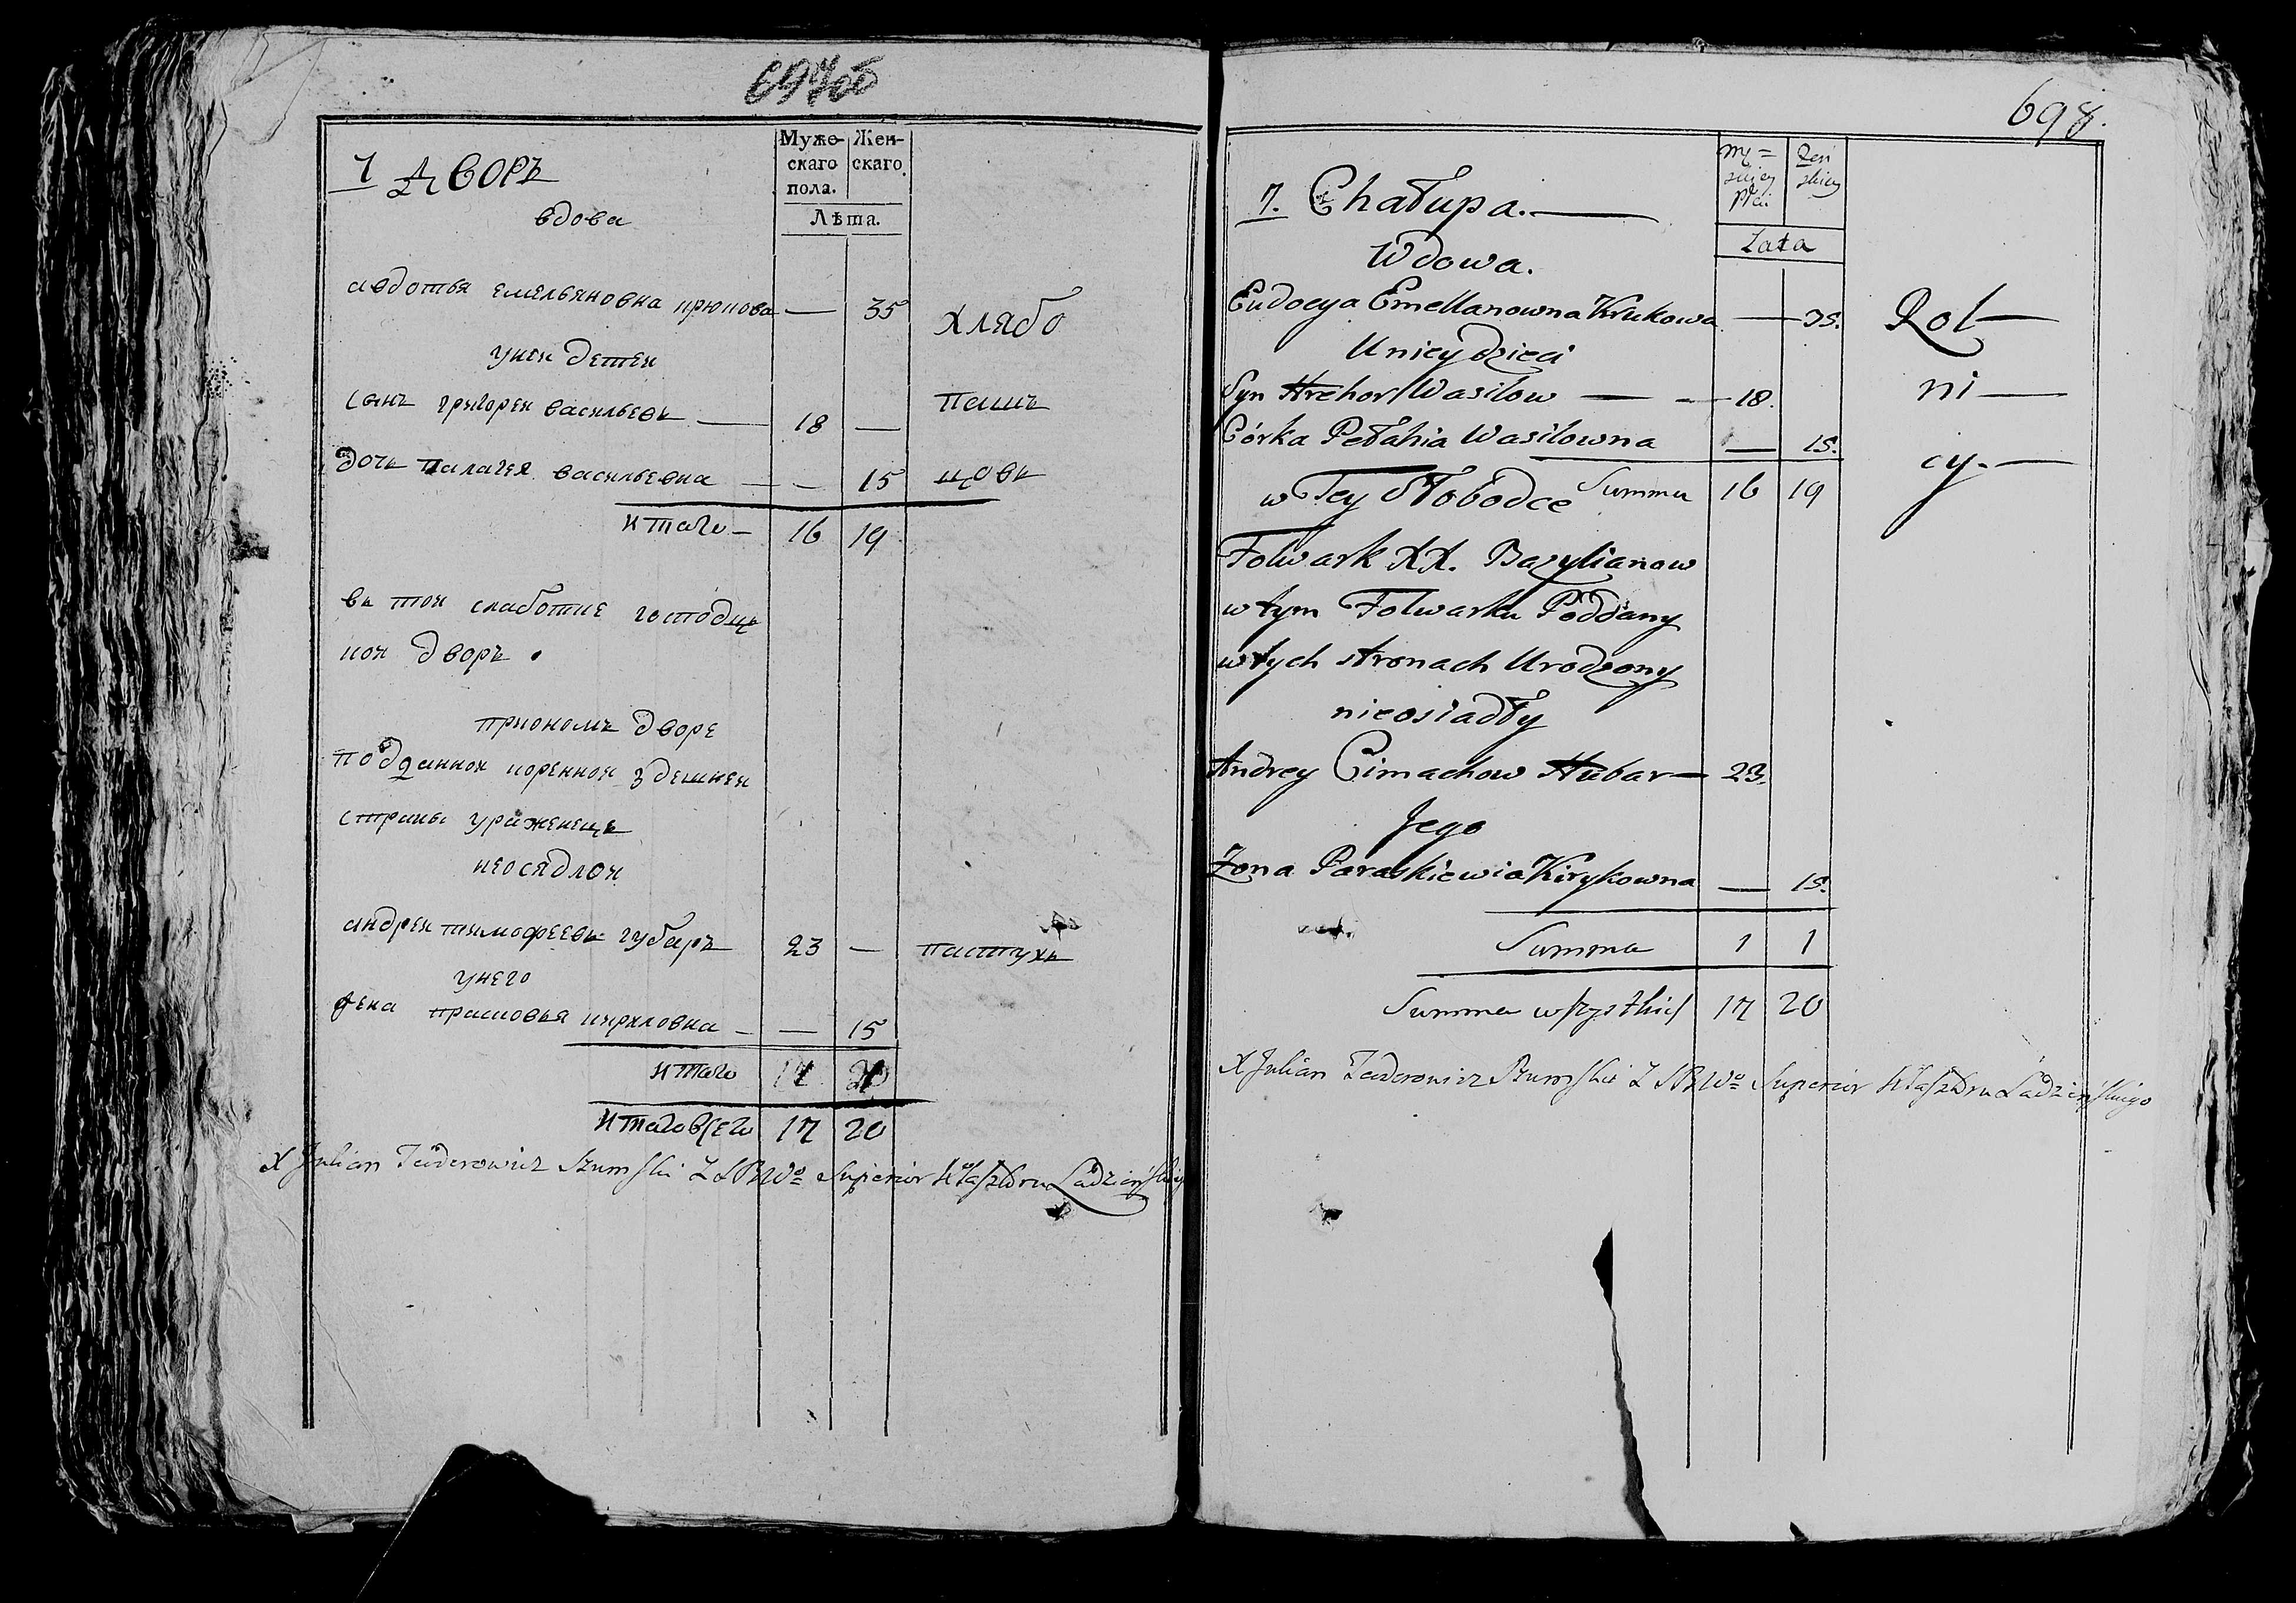 697об
Муже- Жен-
скаго скаго.
пола.
Лѣта.
7 Дворъ
вдова
авдотья емельяновка крюкова — 35 хлябо
унея детей
сынъ григорей васильевъ — 18 — пашъ
дочь палагея васильевна — — 15 цовъ
итаго — 16 19
въ той слаботке господць
кой дворъ.
приономъ дворе
подданной коренной здешней
страны ураженецъ
неосядлой
андрей тимофеевъ губаръ 23 — пастухъ
унего
жена прасковья кириловна — — 15
итаго 1 1
итаго всего 17 20
X Julian Teodorowicz Szumski Z S B Wo Superior Klasztoru Ladzińskiego
698.
Mę= Żeń
zkiey zkiey
Płci
Lata
7. Chałupa. —
Wdowa.
Eudocya Emellanowna Krukowa — 35. Rol —
U niey dzieci
Syn Hrehor Wasilow — — 18. ni —
Córka Pełahia Wasilowna — 15. cy. —
w Tey Słobodce Summa 16 19
Folwark XX. Bazylianow
w tym Folwarku Poddany
w tych stronach Urodzony
nieosiadły
Andrey Cimachow Hubar — 23.
Jego
Żona Paraskiewia Kirykowna — 15.
Summa 1 1
Summa wszystkich 17 20
X Julian Teodorowicz Szumski Z S B Wo Superior Klasztoru Ladzińskiego